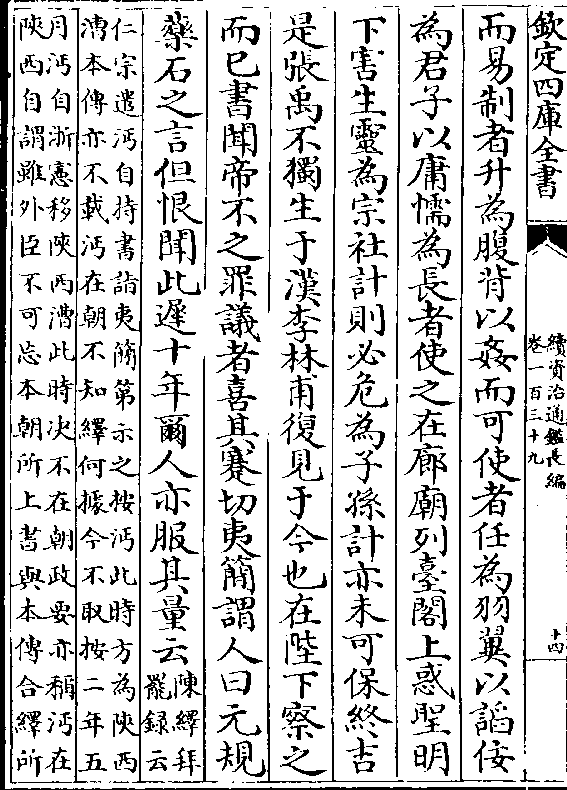 欽定四庫全書
續資治通鑑長編
卷一百三十九
十四
而易制者升為腹背以姦而可使者任為羽翼以謟佞
為君子以庸懦為長者使之在廊廟列臺閣上惑聖明
下害生靈為宗社計則必危為子孫計亦未可保終吉
是張禹不獨生于漢李林甫復見于今也在陛下察之
而已書聞帝不之罪議者喜其蹇切夷簡謂人曰元規
藥石之言但恨聞此遲十年爾人亦服其量云
陳繹拜
罷録云
仁宗遣沔自持書詣夷簡第示之按沔此時方為陜西
漕本傳亦不載沔在朝不知繹何據今不取按二年五
月沔自浙憲移陜西漕此時决不在朝政要亦稱沔在
陜西自謂雖外臣不可忘本朝所上書與本傳合繹所